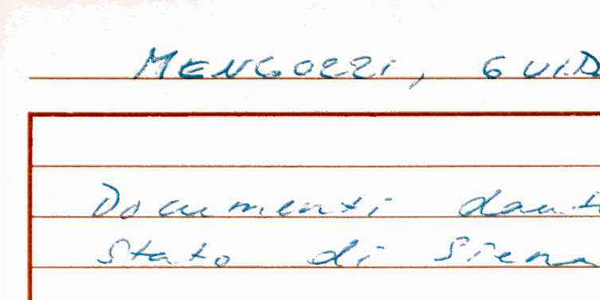 MENGOZZI, GUID
Documenti dant
Stato di Siena